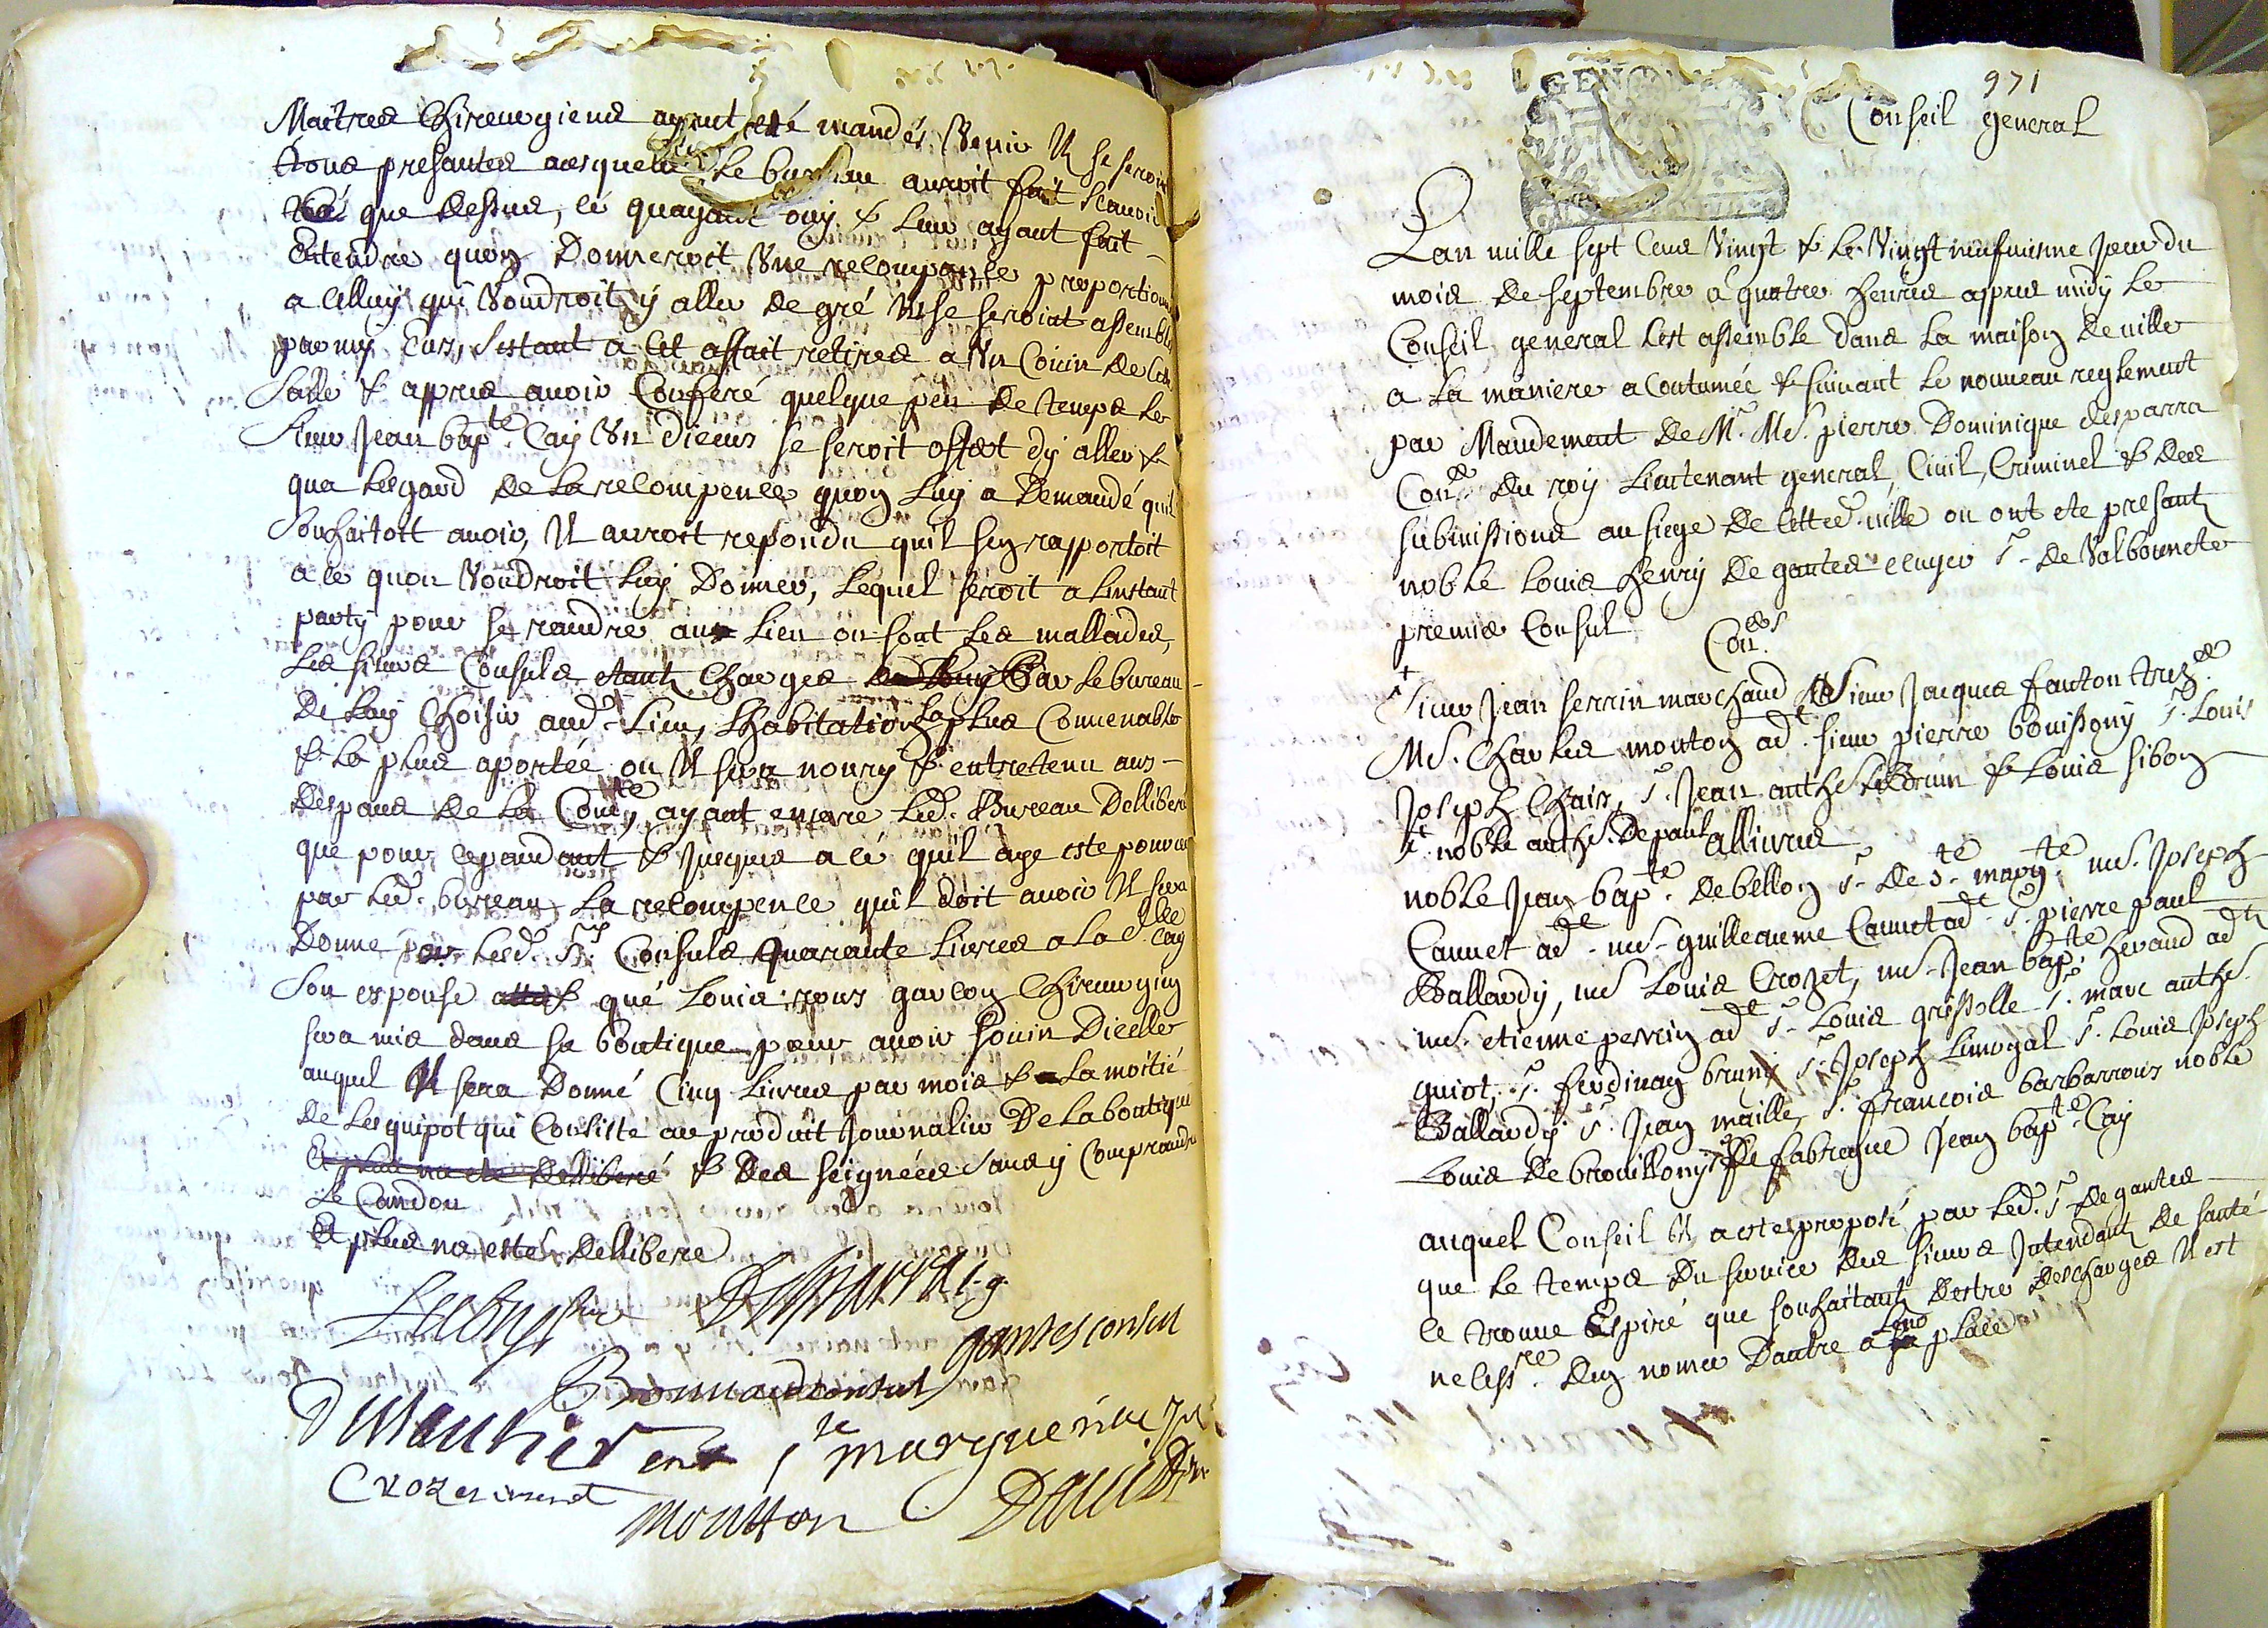 Maitres Chirurgiens ayant esté mandés Venir Il se seroit
tous presantes ausquels Le bureau auroit fait scauoir
que dessus, ce quayant ouy & Leur ayant fait
Entendre quon Donneroit Vne recompance proportionn
a Celluy qui Voudroit y aller de gré Ils se seroint assemblé
parmy Eus, sestant a Cet affait retires a Vn Coiin de la
Salle & appres auoir Conferé quelque peu de temps Le
sieur Jean bapte Cay Vn dieus se seroit offert dy aller &
qua Lesgard de La recompence quon Luy a Demandé quil
souhaitoit auoir, Il auroit repondu quil sen rapportoit
a ce quon Voudroit Luy Donner, Lequel seroit a Linstant
party pour se randre au Lieu ou sont Les mallades,
Les sieurs Consuls etant Charges par Le bureau
De Luy Choisir aud. Lieu, Lhabitation La plus Conuenable
& La plus aportée ou Il sera noury & entretenu aus
despans de La Comté, ayant encore Led. Bureau Delliberé
que pour cependant & Jusques a ce quil aye este pourveu
par Led. bureau La recompence quil doit auoir Il sera
Donné par Lesd. Srs Consuls Quarante Liures a La dlle Cay
Son espouse & que Louis rous garcon Chirurgien
sera mis dans sa boutique pour auoir soin Dicelle
auquel Il sera Donné Cinq Liures par mois & La moitié
de Lesquipot qui Consiste au produit Journalier De La boutique
Et plus na ete Delliberé & des seignées sans y Comprandre
Le Candou
Et plus na esté Dellibere
Desparra l. g.
gantes consul
Bonnaud consul
Ste marguerite
Crozet
moutton David
971
Conseil general
Lan mille sept Cens Vingt & Le Vingt neufuiesme Jour du
mois de septembre a quatre heures appres midy Le
Conseil general sest assemble dans La maison de ville
a La maniere acoutumée & suiuant Le nouveau reglement
par Mandement de Mr. Me. pierre Dominique desparra
Coner du roy Lieutenant general Ciuil, Criminel & des
submissions au siege de Cette ville ou ont ete presant
noble Louis henry de gantes ecuyer Sr de Valbonnete
premier Consul
Coners
+ Sieur Jean serrin marchand Sieur Jacques fanton trezer
Me. Charles mouton adt. sieur pierre bouissony Sr. Louis
Joseph Chaix, Sr. Jean anthe Lebrun & Louis sibon
+ noble anthe. De paul
alliures
noble Jean bapte. de bellon Sr. de Ste margte Me. Joseph
Cannet adt. Me. guilleaume Cannet adt. Sr. pierre paul
Ballardy, Me Louis Crozet, Me. Jean bapte heraud adt
Me. etienne perrin adt Sr. Louis grissolle Sr. marc anthe.
guiot, Sr. ferdinan bruny Sr. Joseph Limogal Sr. Louis Joseph
Ballardy Sr. Jean maille, Sr. francois barbarrous noble
Louis de brouillony Sr De fabregue Jean bapte. Cay
auquel Conseil Il a este proposé par Led. Sr De gantes
que Le temps Du seruice des sieurs Intendants de santé
ce trouue Espiré que souhaitant Destre descharges Il est
necessre. Den nomer Dautre a Leur place